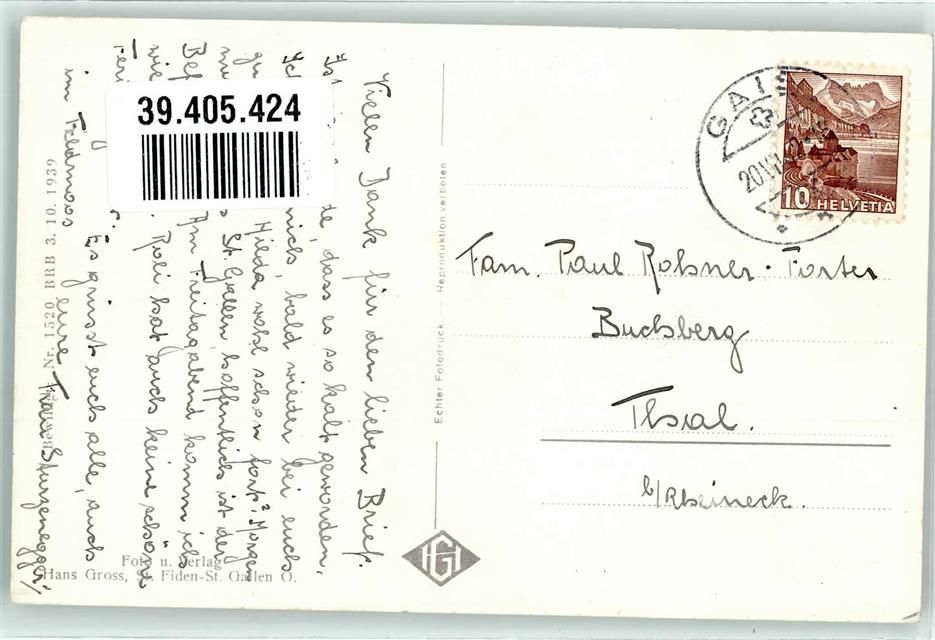 39.405.424
Vielen Dank für den lieben Brief.
dass es so kalt geworden,
mich, bald wieder bei euch
Hilda wohl schon fort? Morgen
St. Gallen, hoffentlich ist der
Am Freitagabend komm ich
Roli hat auch keine schöne
Es grüsst euch alle, auch
im Feldmoos eure Frau Sturzenegger
Bewilligung Nr. 1520 BRB 3. 10. 1939
Foto u. Verlag
Hans Gross, St. Fiden-St. Gallen O.
Echter Fotodruck - Reproduktion verboten
HG
GAIS
20.VII
10 HELVETIA
Fam. Paul Rohner-Forster
Buchberg
Thal.
b/Rheineck.